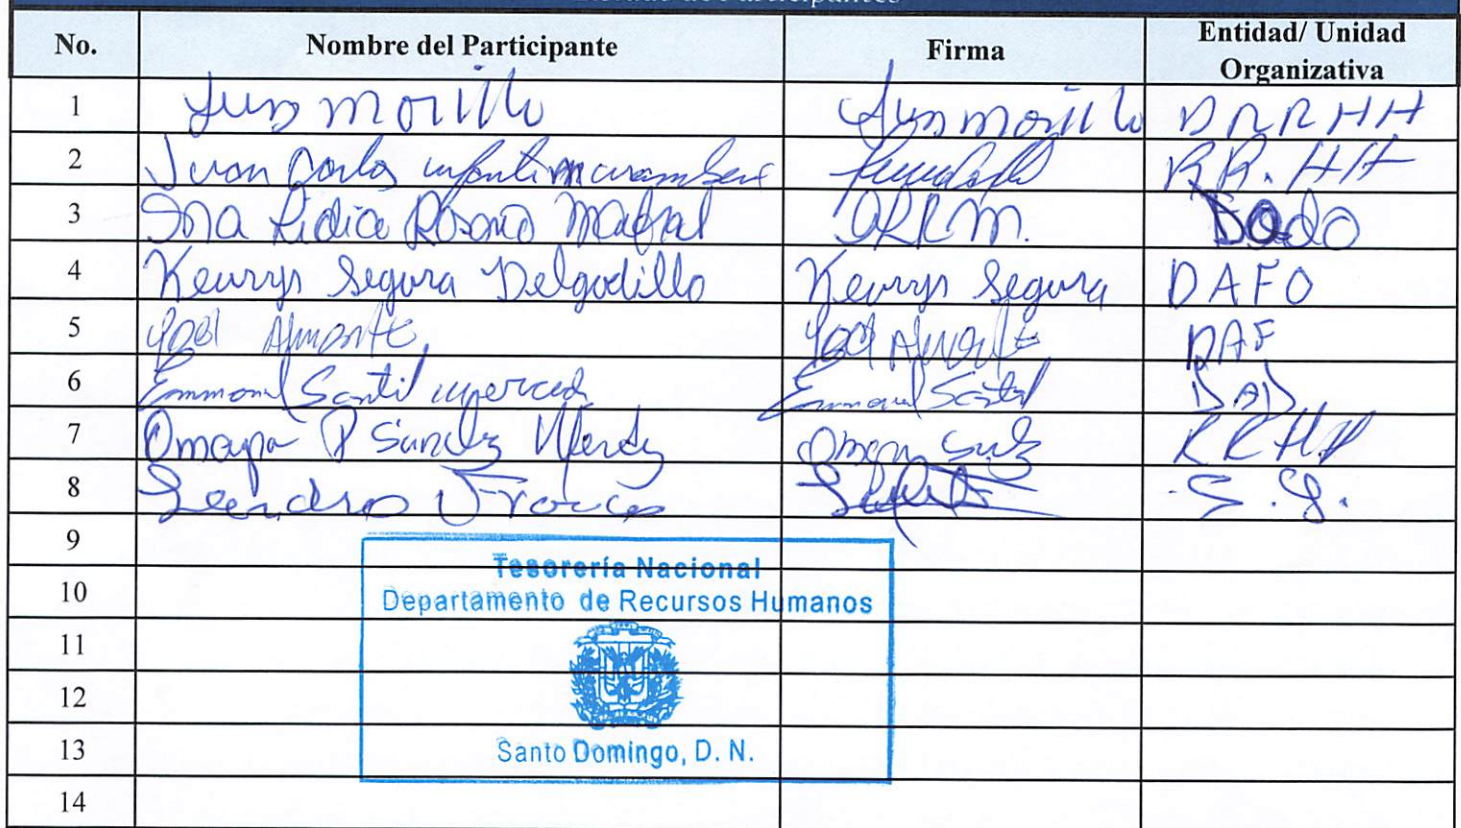 No. Nombre del Participante Firma Entidad/ Unidad Organizativa
1 Luis Morillo Luis Morillo DRRHH
2 Juan Carlos RR.HH
3 Lidia Rosario Madral ORRM. DADO
4 Keurys Segura Delgadillo Keurys Segura DAFO
5 Yoel Almonte Yoel Almonte DAF
6 Emmanuel Santil merced Emmanuel Santil DAD
7 Omayra P Sanchez Mendez RRHH
8 Leandro S.G.
9
Tesorería Nacional
10
Departamento de Recursos Humanos
11
12
13
Santo Domingo, D. N.
14